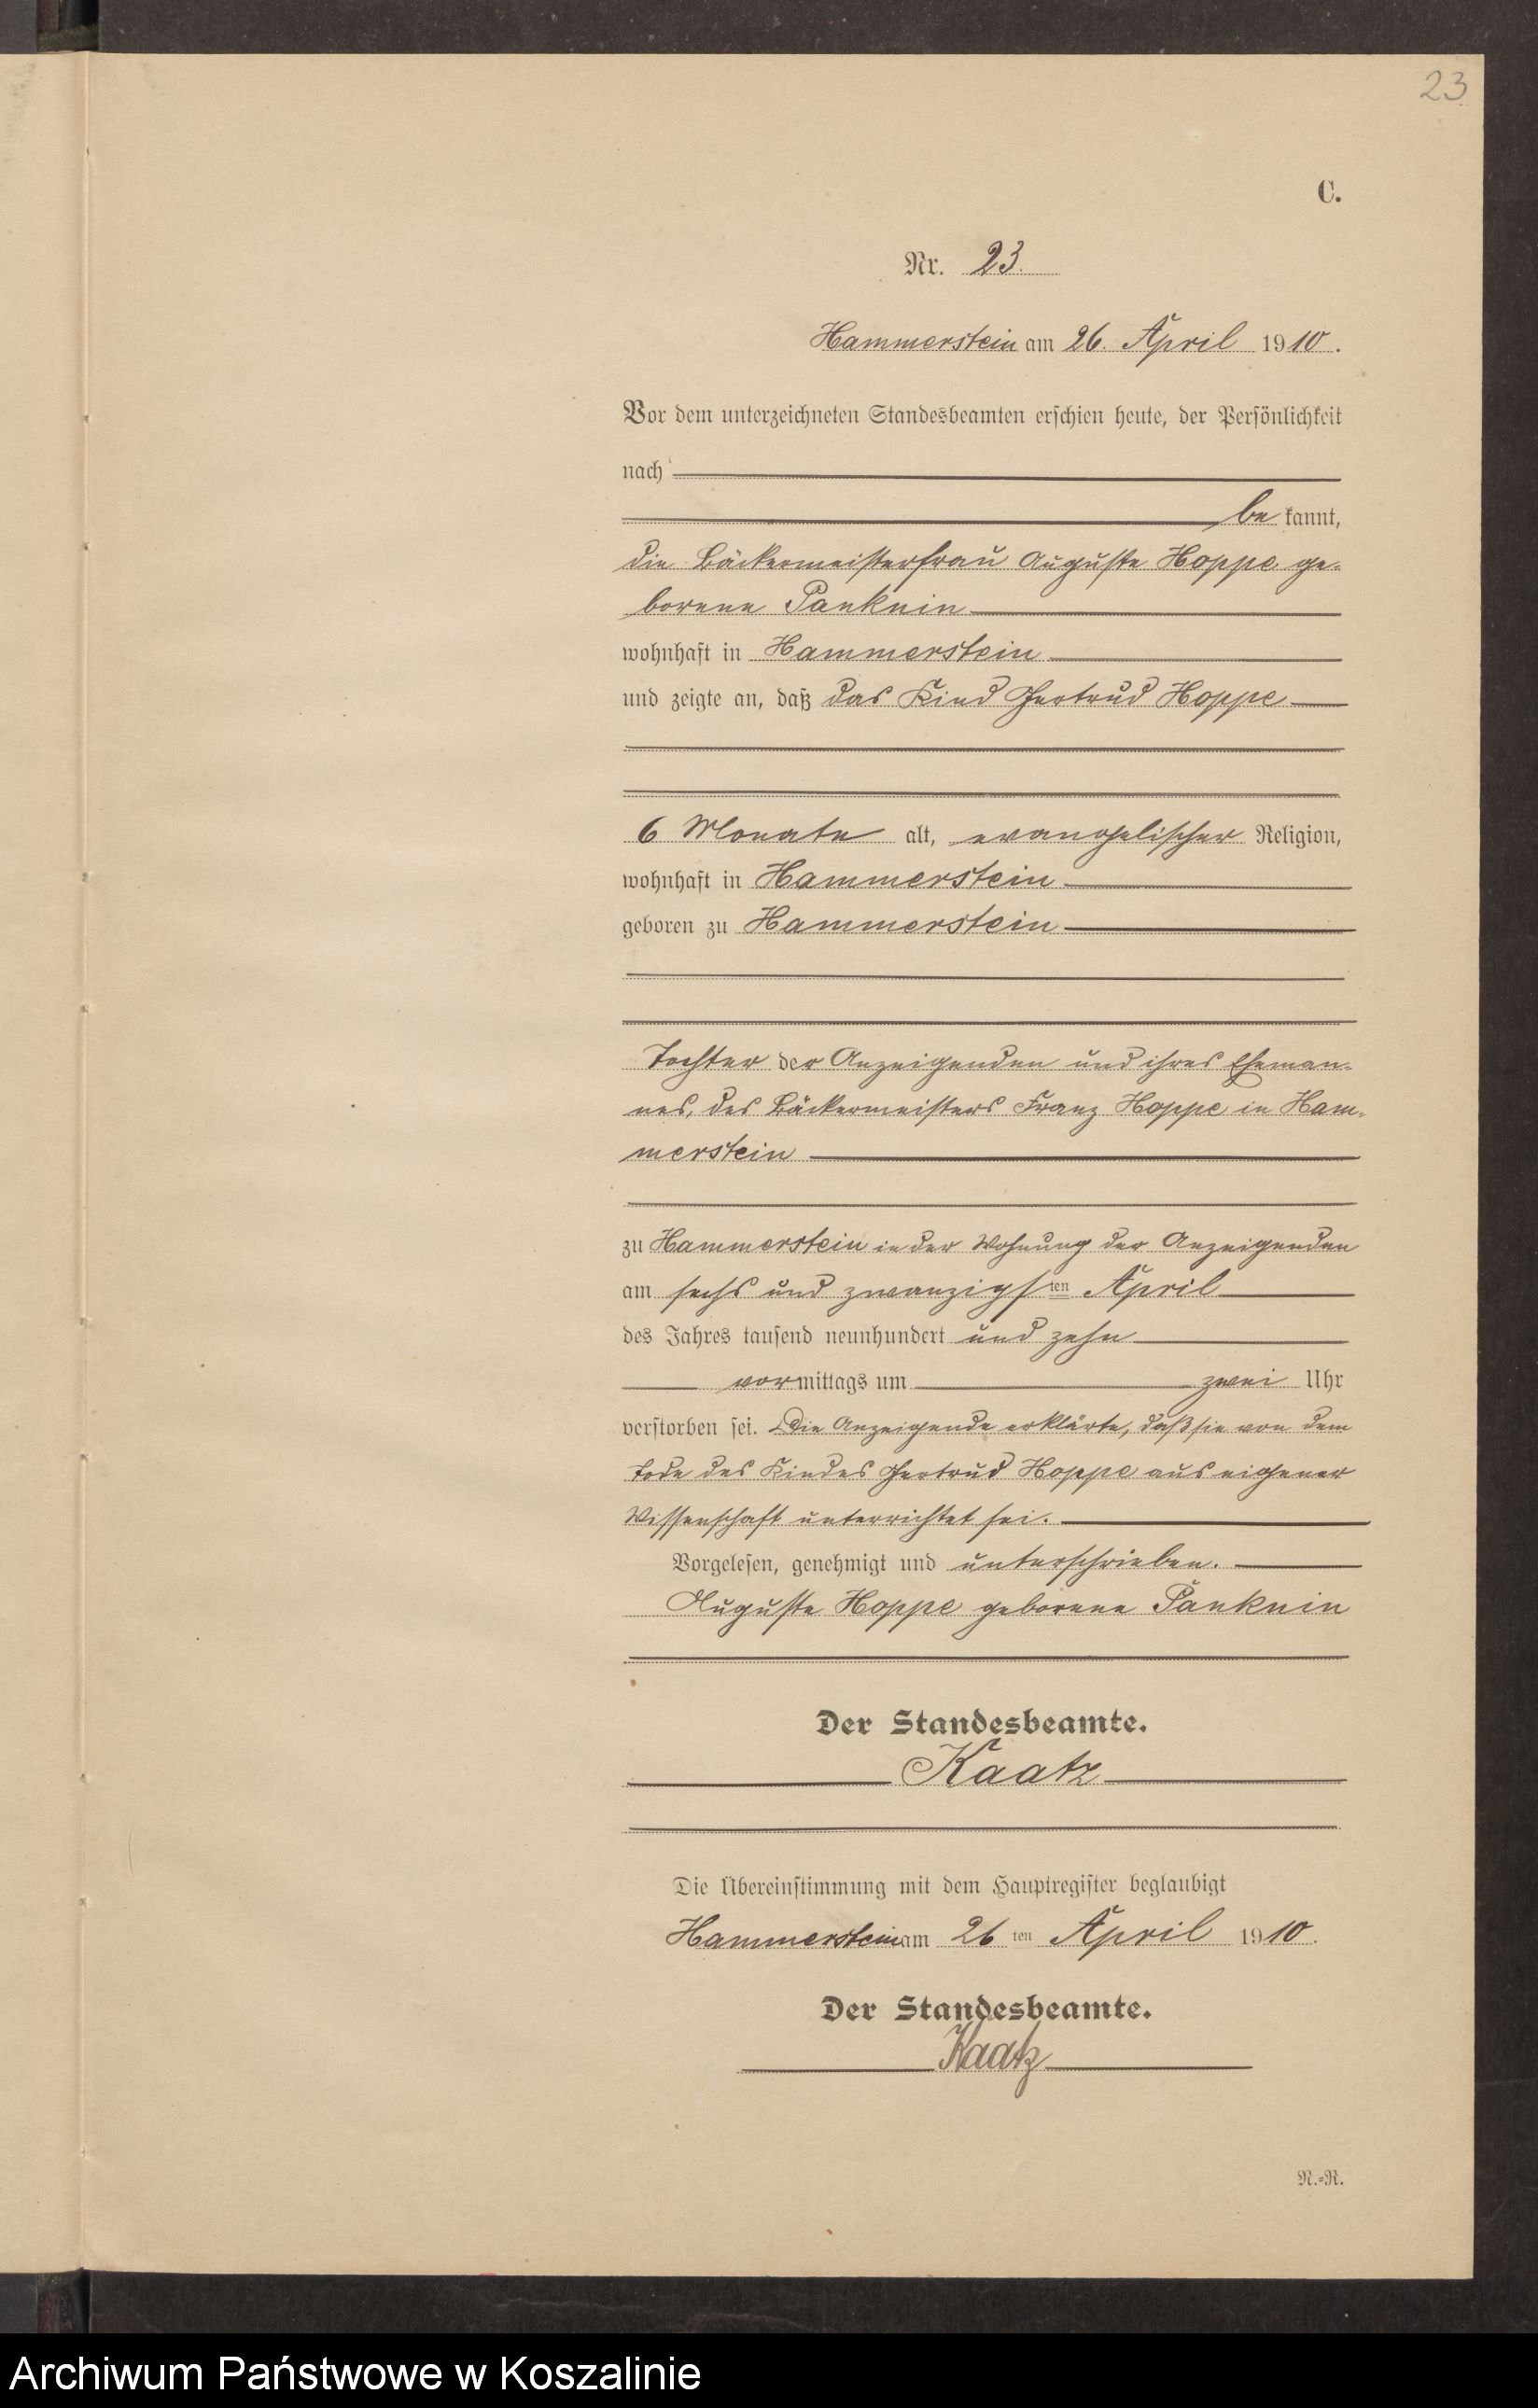 23
C.
Nr. 23.
Hammerstein am 26. April 1910.
Vor dem unterzeichneten Standesbeamten erschien heute, der Persönlichkeit
nach
be kannt,
die Bäckermeisterfrau Auguste Hoppe ge-
borene Panknin
wohnhaft in Hammerstein
und zeigte an, daß das Kind Gertrud Hoppe
6 Monate alt, evangelischer Religion,
wohnhaft in Hammerstein
geboren zu Hammerstein
Tochter der Anzeigenden und ihres Eheman-
nes, des Bäckermeisters Franz Hoppe in Ham-
merstein
zu Hammerstein in der Wohnung der Anzeigenden
am sechs und zwanzigsten April
des Jahres tausend neunhundert und zehn
vormittags um zwei Uhr
verstorben sei. Die Anzeigende erklärte, daß sie von dem
Tode des Kindes Gertrud Hoppe aus eigener
Wissenschaft unterrichtet sei.
Vorgelesen, genehmigt und unterschrieben.
Auguste Hoppe geborene Panknin
Der Standesbeamte.
Kaatz
Die Übereinstimmung mit dem Hauptregister beglaubigt
Hammerstein am 26ten April 1910.
Der Standesbeamte.
Kaatz
N.-R.
Archiwum Państwowe w Koszalinie